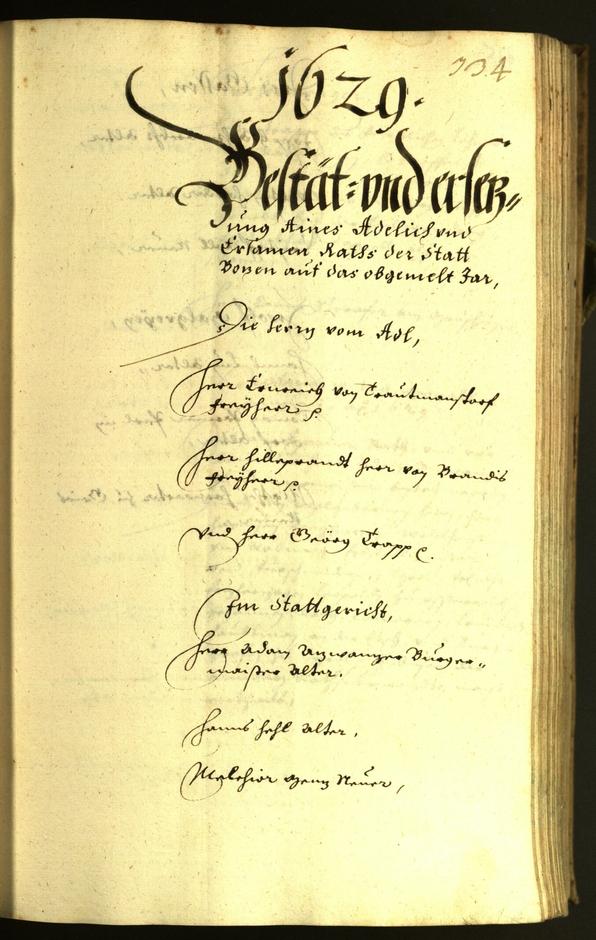 334
1629.
Bestät= vnd ersez„
zung Aines Adelich vnd
Ersamen Raths der Statt
Bozen auf das obgemelt Jar,
Die herrn vom Adl,
Herr von Trautmanstorf
freÿherr
Herr Hilleprandt herr von Brandis
freÿherr
vnd herr Geörg Trapp
Im Stattgericht,
Herr Adam Burger„
maister Alter.
Hanns Hehl Alter,
Melchior Neuer,